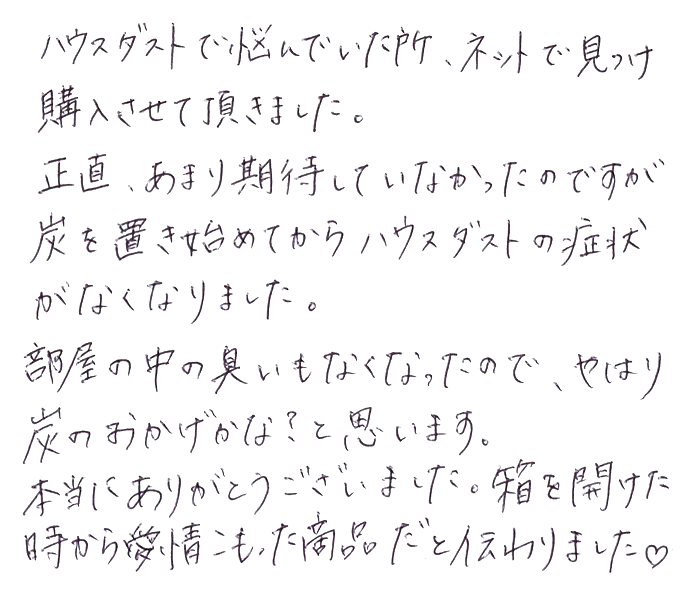 ハウスダストで悩んでいた所、ネットで見つけ
購入させて頂きました。
正直、あまり期待していなかったのですが
炭を置き始めてからハウスダストの症状
がなくなりました。
部屋の中の臭いもなくなったので、やはり
炭のおかげかな?と思います。
本当にありがとうございました。箱を開けた
時から愛情こもった商品だと伝わりました♡